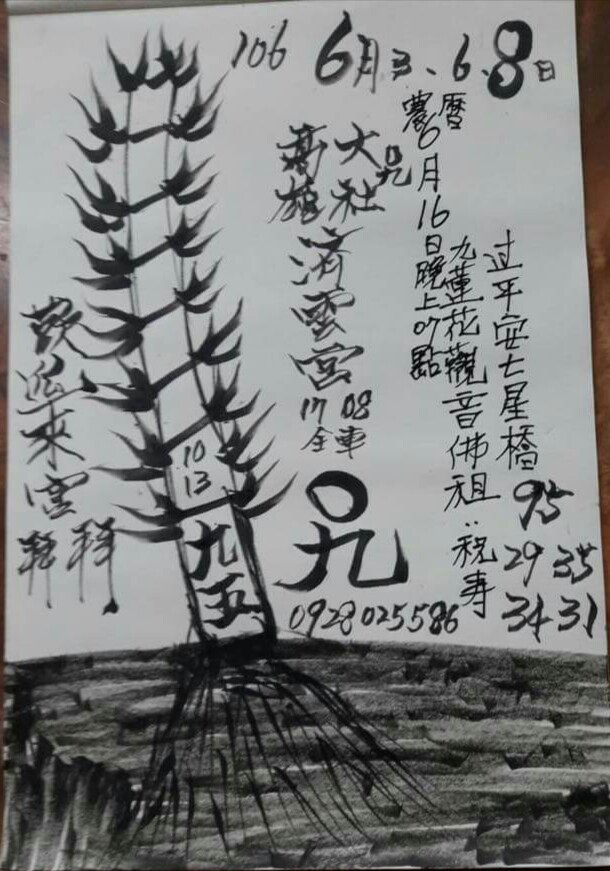 106 6月3、6、8日
農曆6月16日晚上07點
过平安七星橋
九蓮花觀音佛祖:祝寿
大社
高雄
濟雲宮
17 08
全車
歡迎來宮拜拜
10
13
九五
0九
0928025586
95
29 35
34 31